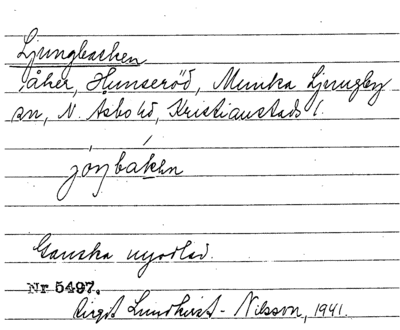 Ljungbacken
åker, Hunseröd, Munka Ljungby
sn, N. Åsbo hd, Kristianstads l.
Ganska nyodlad.
Nr 5497.
Birgit Lundkvist-Nilsson, 1941.